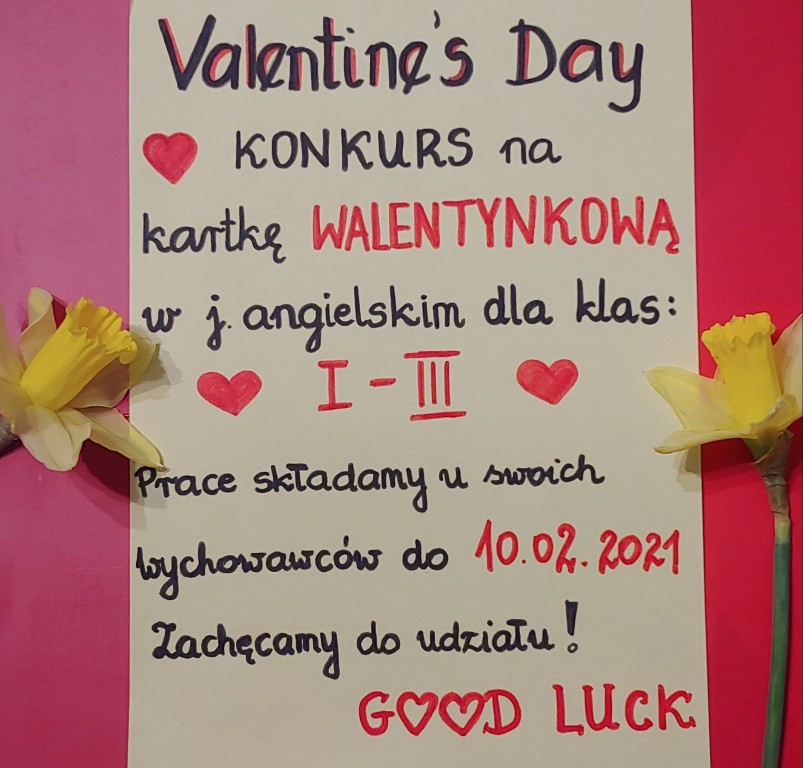 Valentine's Day
KONKURS na
kartkę WALENTYNKOWĄ
w j. angielskim dla klas:
I - III
Prace składamy u swoich
wychowawców do 10.02.2021
Zachęcamy do udziału!
GOOD LUCK